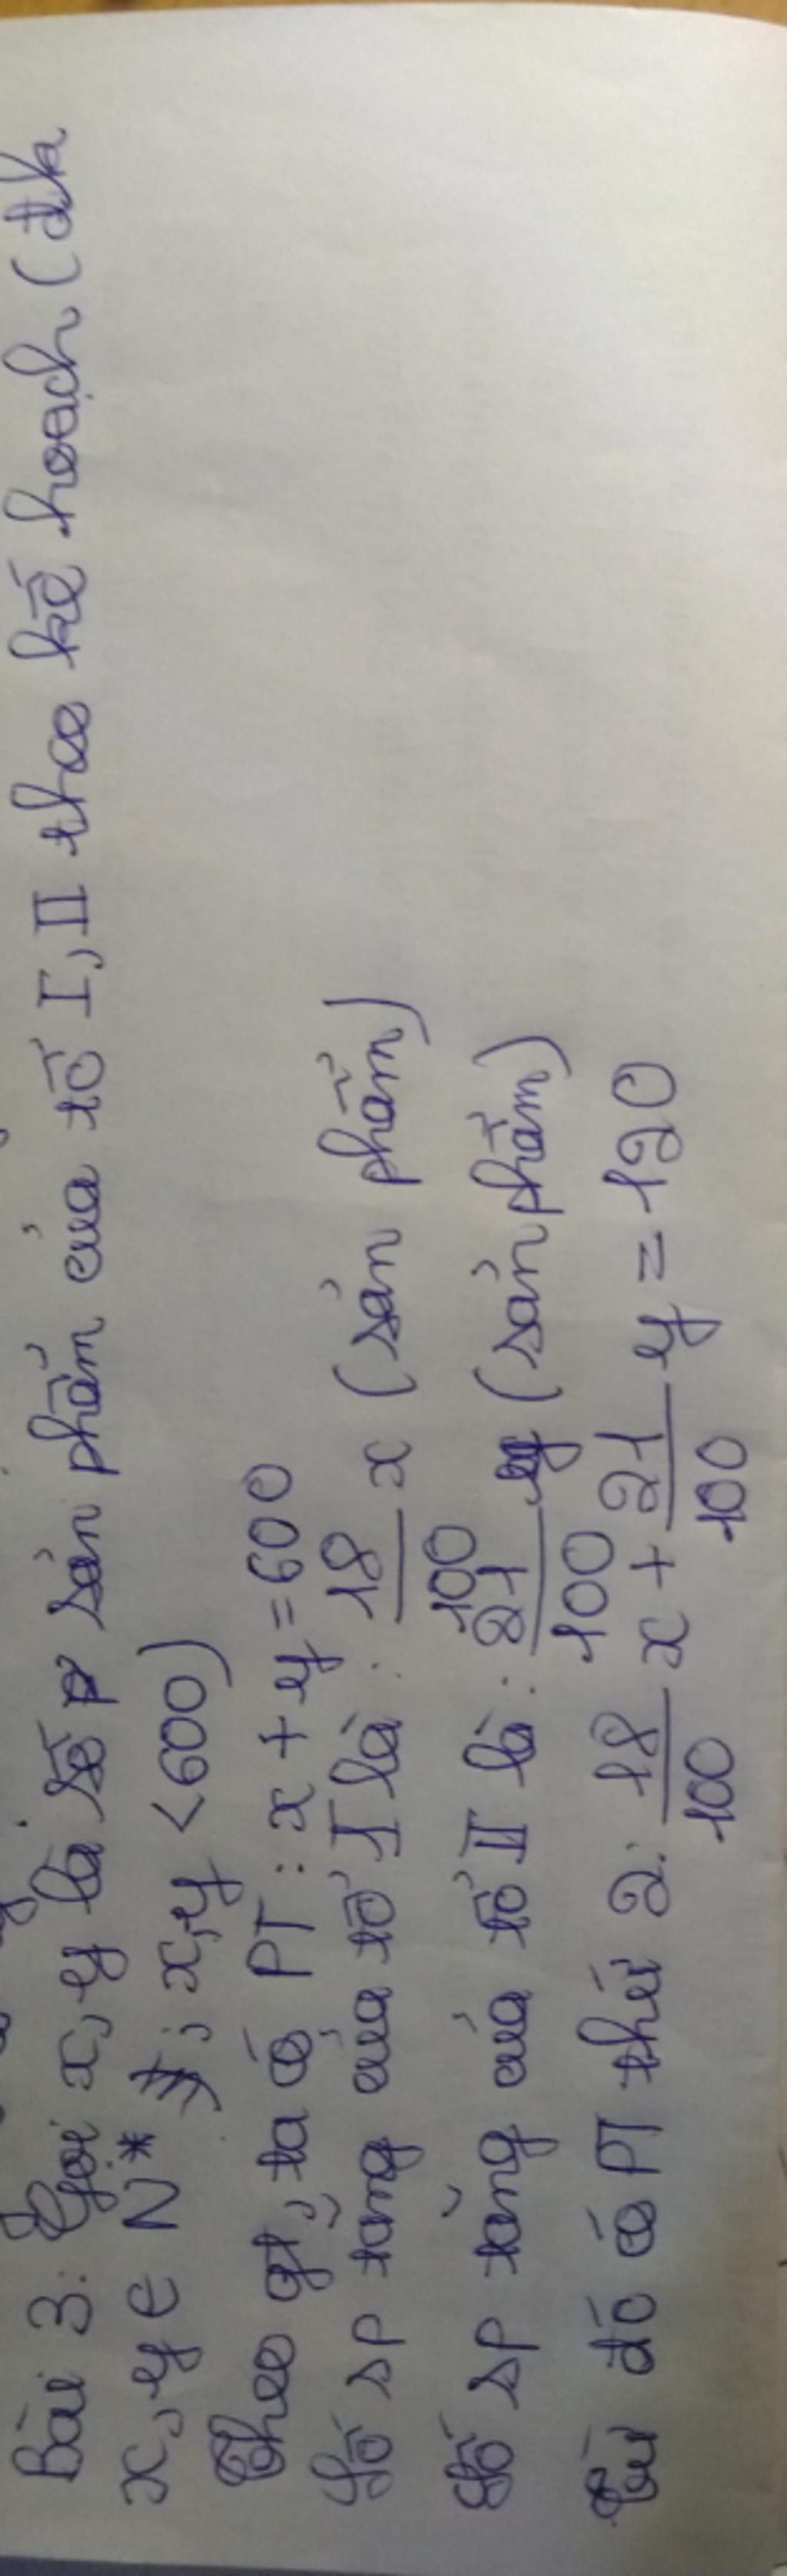 Bài 3: Gọi x, y là số sản phẩm của tổ I, II theo kế hoạch (đk
x, y ∈ N*; x, y < 600)
Theo gt, ta có PT: x + y = 600
Số sp tăng của tổ I là: 18/100 x (sản phẩm)
Số sp tăng của tổ II là: 21/100 y (sản phẩm)
Từ đó có PT thứ 2: 18/100 x + 21/100 y = 120